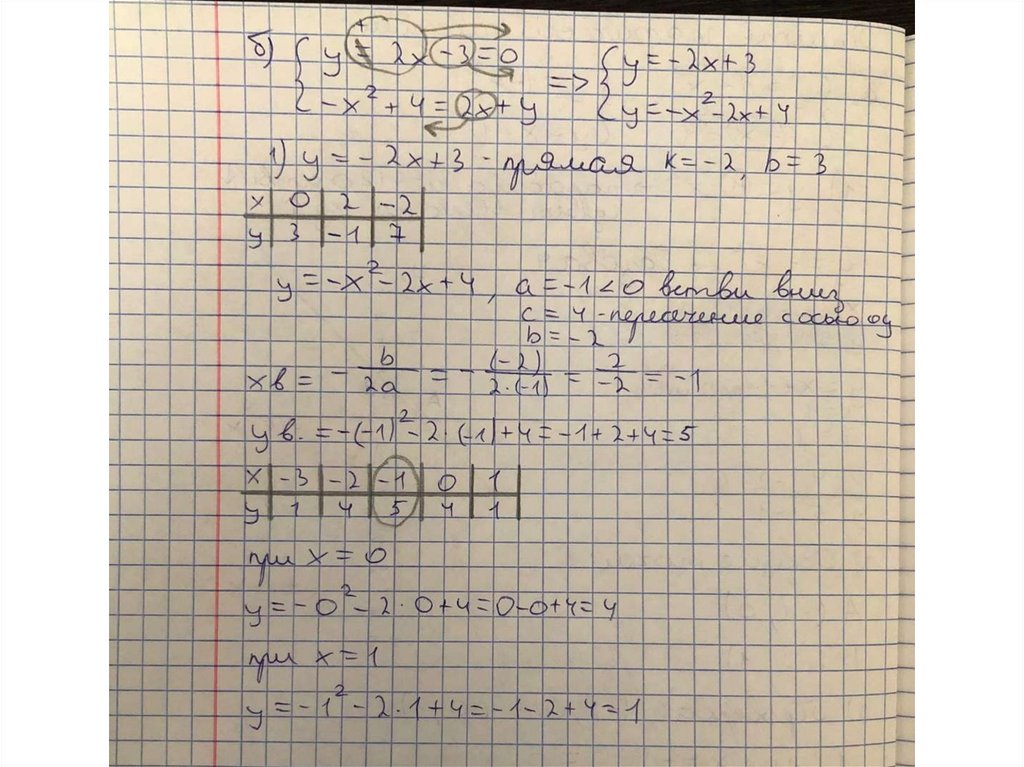 б) { y + 2x - 3 = 0 => { y = -2x + 3
{ -x² + 4 = 2x + y { y = -x² - 2x + 4
1) y = -2x + 3 - прямая k = -2, b = 3
x | 0 | 2 | -2
y | 3 | -1 | 7
y = -x² - 2x + 4, a = -1 < 0 ветви вниз
c = 4 - пересечение с осью oy
b = -2
xв = - b/2a = - (-2)/2·(-1) = 2/-2 = -1
yв. = -(-1)² - 2·(-1) + 4 = -1 + 2 + 4 = 5
x | -3 | -2 | -1 | 0 | 1
y | 1 | 4 | 5 | 4 | 1
при x = 0
y = -0² - 2·0 + 4 = 0 - 0 + 4 = 4
при x = 1
y = -1² - 2·1 + 4 = -1 - 2 + 4 = 1